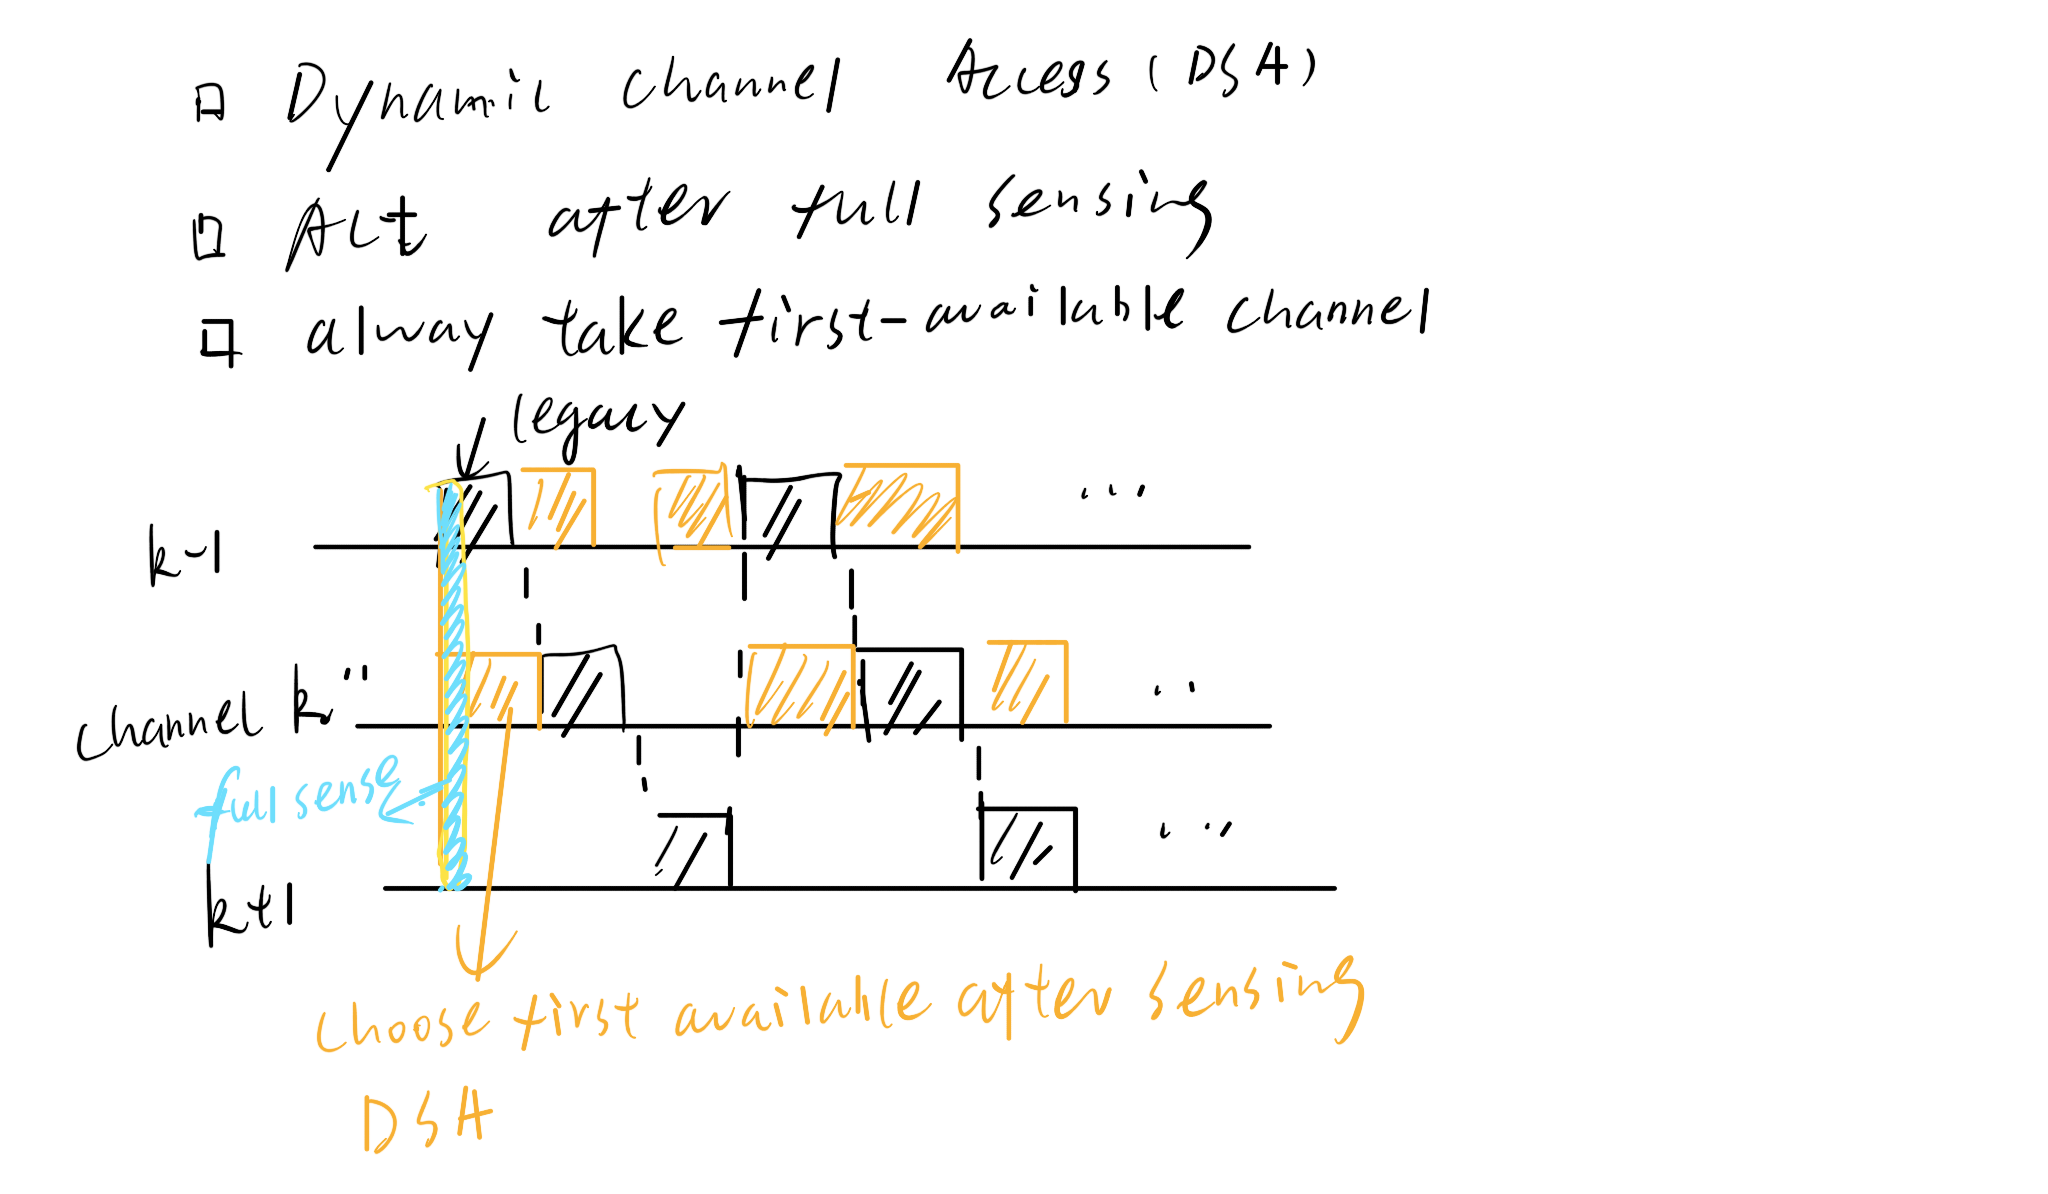 Dynamic channel Access (DSA)
Act after full sensing
alway take first-available channel
legacy
k-1
channel k
full sense
k+1
choose first available after sensing
DSA